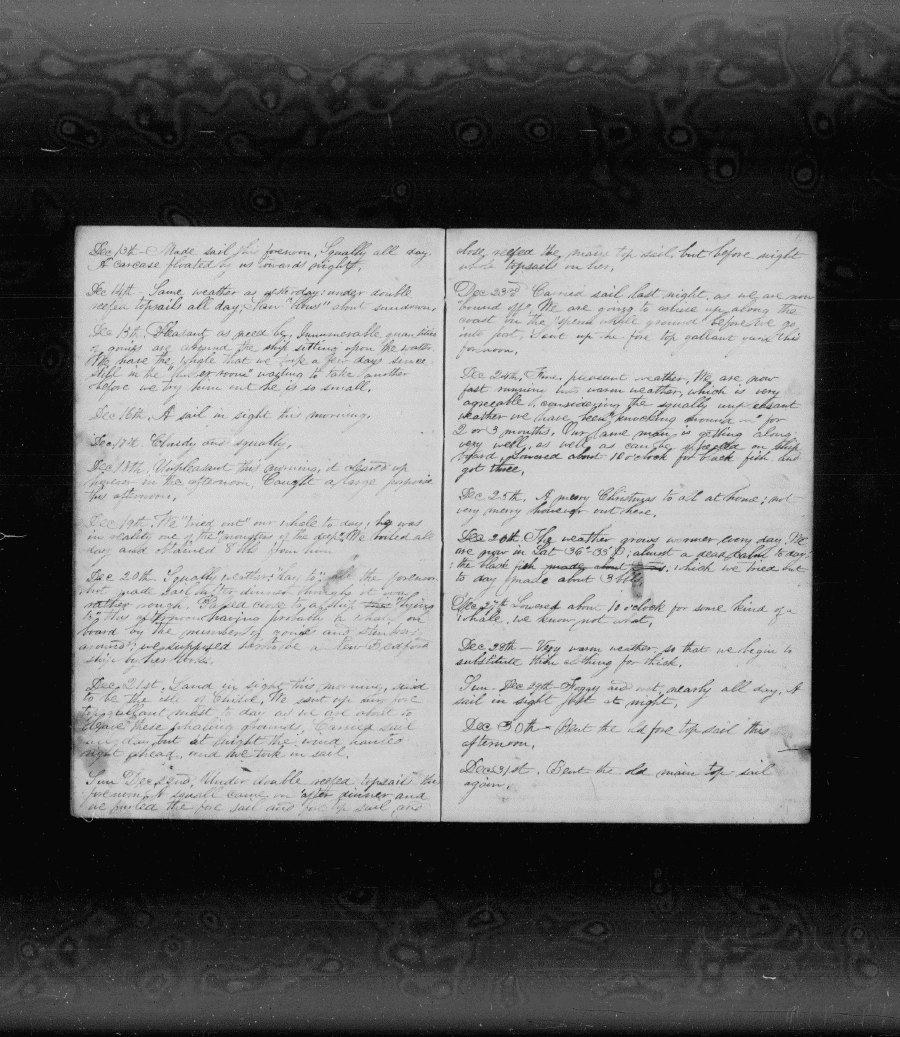 Dec 13th - Made sail this forenoon, Squally all day.
A carcase floated by us towards night.
Dec 14th - Same weather as yesterday: under double
reefen topsails all day, Saw "blows" about sundown.
Dec 15th. Pleasant as need be, Innumerable quantities
of gonies are around the ship sitting upon the water.
We have the whale that we took a few days since
still in the waiting to take another
before we try him out he is so small.
Dec 16th. A sail in sight this morning.
Dec 17th Cloudy and squally.
Dec 18th. Unpleasant this morning, it cleared up
however in the afternoon, Caught a large porpoise
this afternoon.
Dec 19th. We "tried out" our whale to day, he was
in reality one of the "monsters of the deep". We boiled all
day and obtained 8 bbls from him
Dec 20th. Squally weather; "lay to" all the forenoon
but made sail before dinner though it was
rather rough. Passed close to a ship "lying
to" this afternoon having probably a whale on
board by the number of gonies and
around; we supposed her to be a New Bedford
ship by her looks.
Dec 21st. Land in sight this morning, said
to be the isle of Chiloe, We sent up our fore
topgallant mast to day as we are about to
leave these whaling grounds, Carried sail
all day but at night the wind hauled
right ahead, and we took in sail.
Sun Dec 22nd, Under double reefed topsails this
forenoon, A squall came on after dinner and
we furled the fore sail and fore top sail, and
close reefed the main top sail, but before night
whole topsails on her.
Dec 23rd Carried sail last night, as we are now
"bound off". We are going to cruise up along the
coast on the "sperm whale ground" before we go
into port, Sent up the fore top gallant yard this
forenoon.
Dec 24th, Fine, pleasant weather, We are now
fast running into warm weather, which is very
agreeable, considering the squally unpleasant
weather we have been "knocking around in" for
2 or 3 months, Our lame man is getting along
very well, as well as can be expected on ship
board, Lowered about 10 o'clock for black fish and
got three.
Dec 25th. A merry Christmas to all at home; not
very merry however out here.
Dec 26th. The weather grows warmer every day, We
are now in Lat 36° 33' S; almost a dead calm to day:
the black fish made about, which we tried out
to day made about 3 bbls
Dec 27th Lowered about 10 o'clock for some kind of a
whale, we know not what,
Dec 28th - Very warm weather, so that we begin to
substitute thin clothing for thick,
Sun. Dec 29th - Foggy and wet, nearly all day, A
sail in sight just at night,
Dec 30th - Bent the old fore top sail this
afternoon,
Dec 31st. Bent the old main top sail
again,